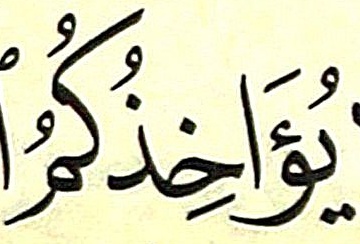 يُؤَاخِذُكُمُ